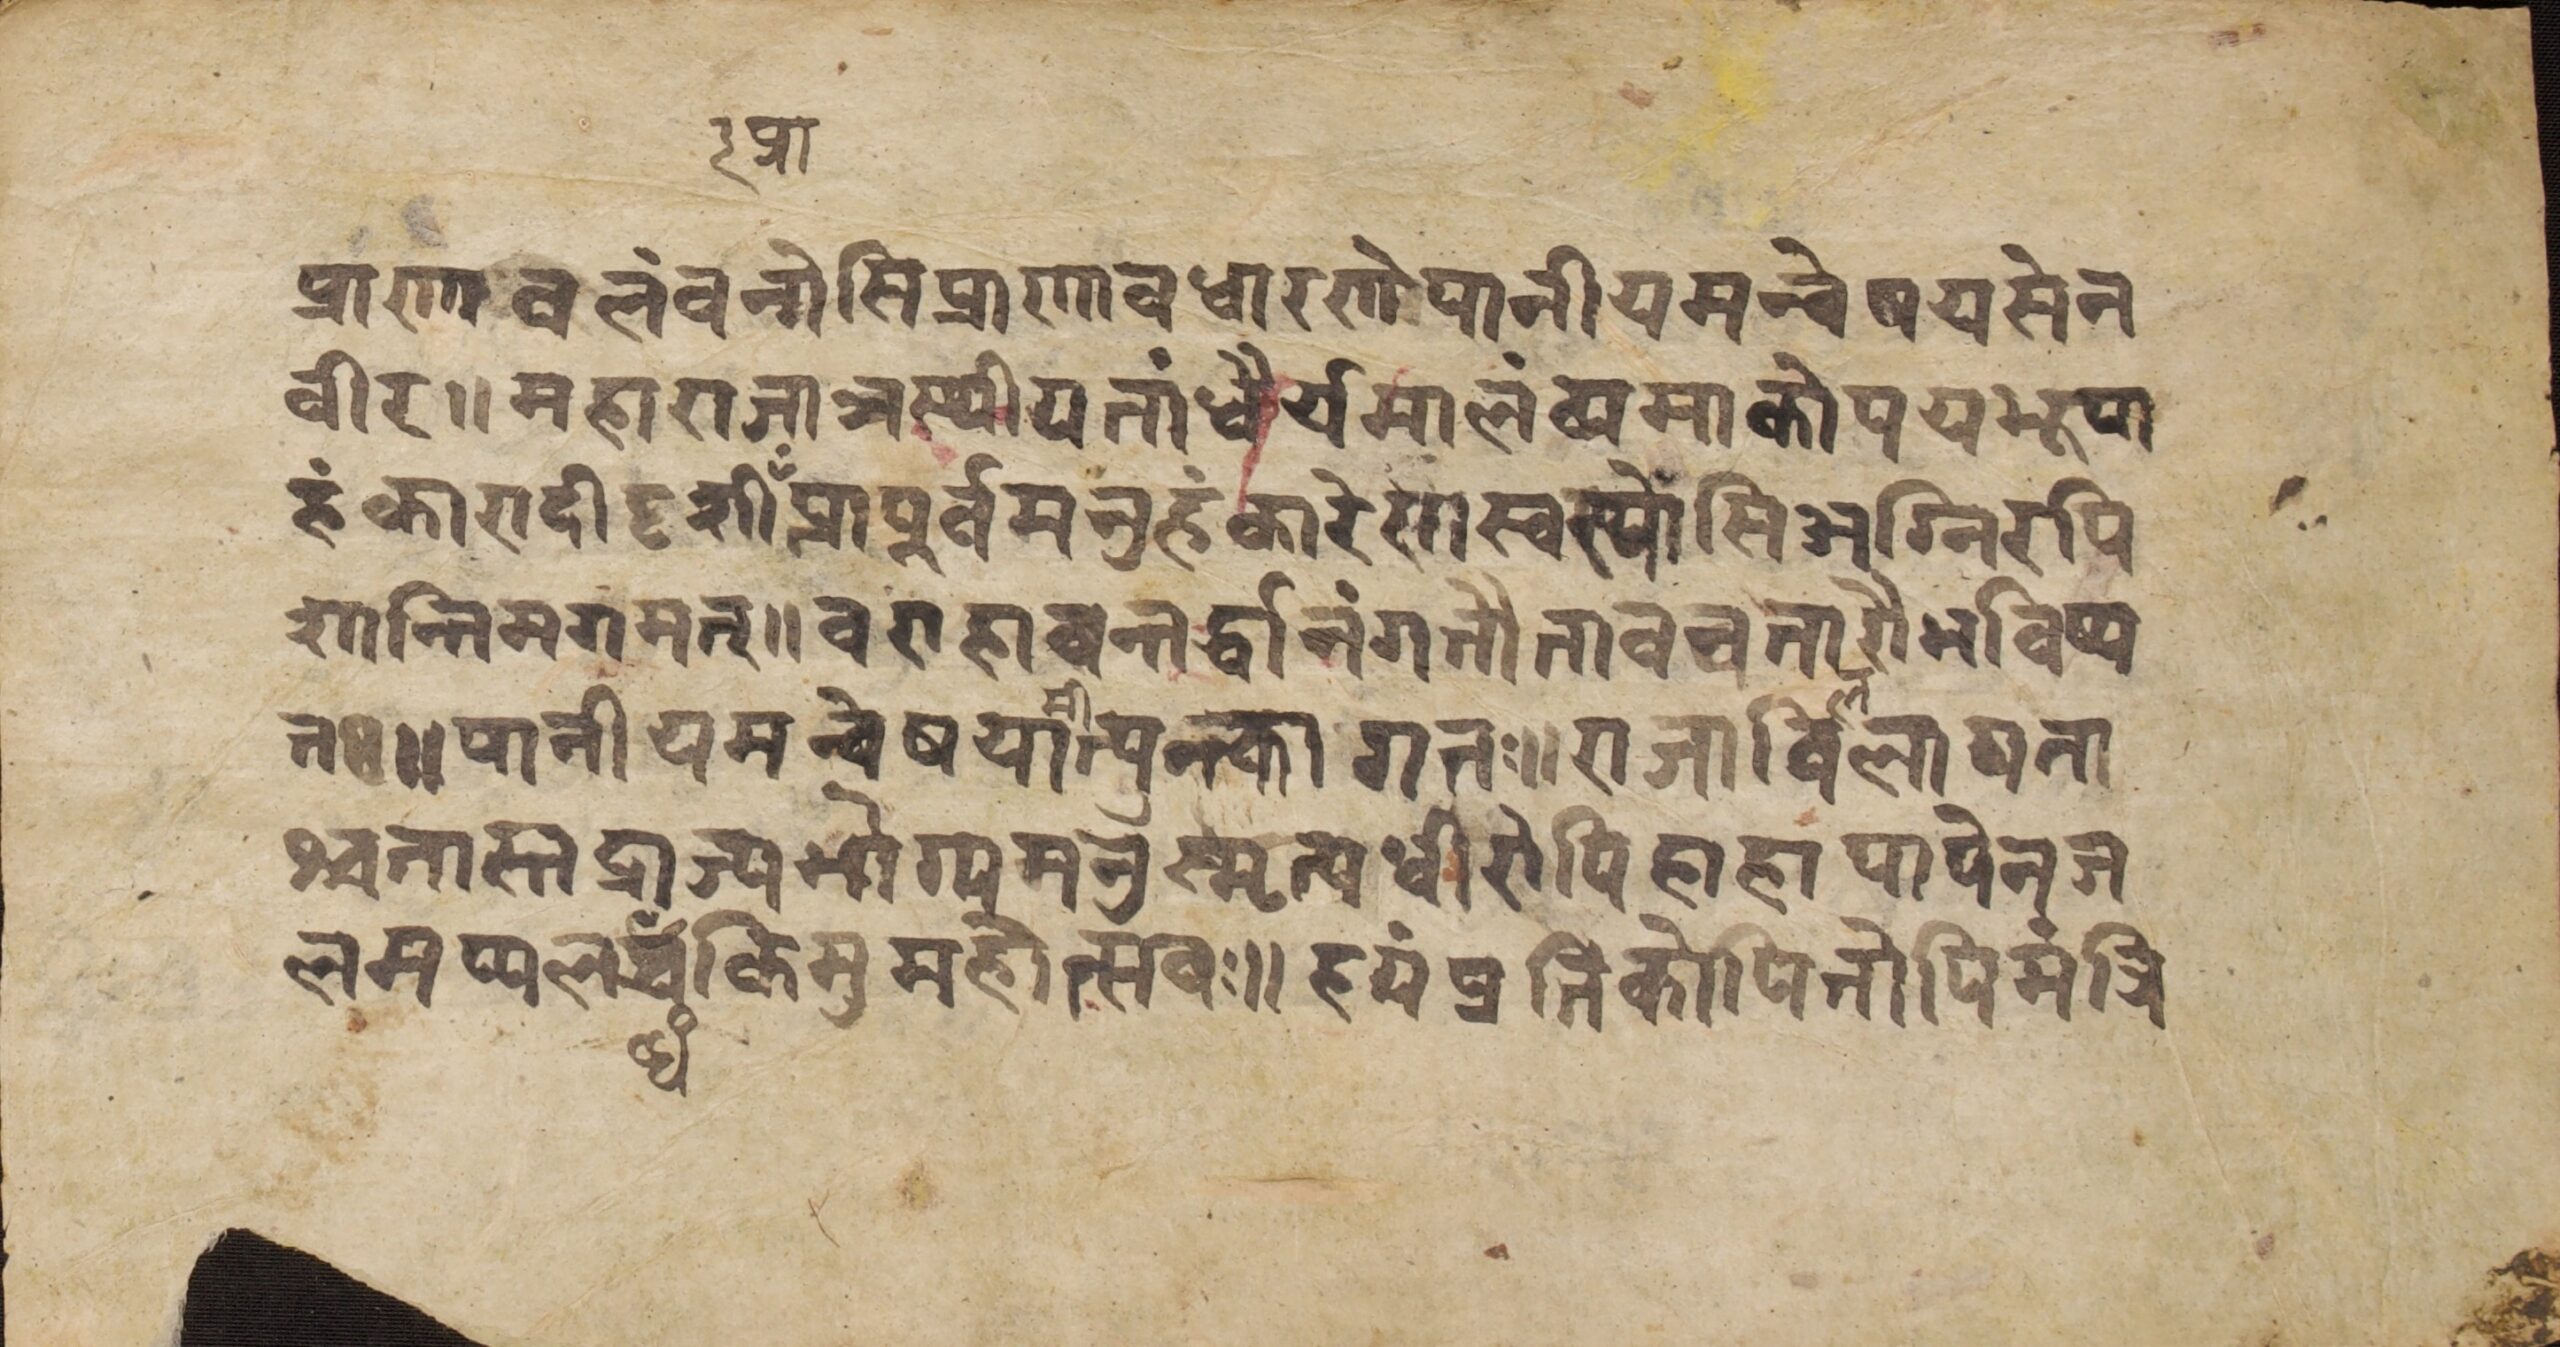 ३प्रा
प्राणावलंवनोसिप्राणावधारणेपानीयमन्वेषयसेन
वीर॥महाराजात्रस्थीयतांधैर्यमालंव्यमाकोपयभूपा
हंकारादीदृशीँप्रापूर्वमनुहंकारेणास्वस्थोसिअग्निरपि
शान्तिमगमत्॥वराहाश्वन्तर्द्धानंगतौतावचनारौभविष्य
त॥पानीयमन्वेषयामीत्युत्क्कागतः॥राजार्विललापता
श्चतास्तद्राज्यभोग्यमनुस्मृत्यधीरोपिहाहापापेनज
लमप्यलब्धंकिमुमहोत्सवः॥हयंप्रतिकोपितोपिमंत्रि
ब्धं